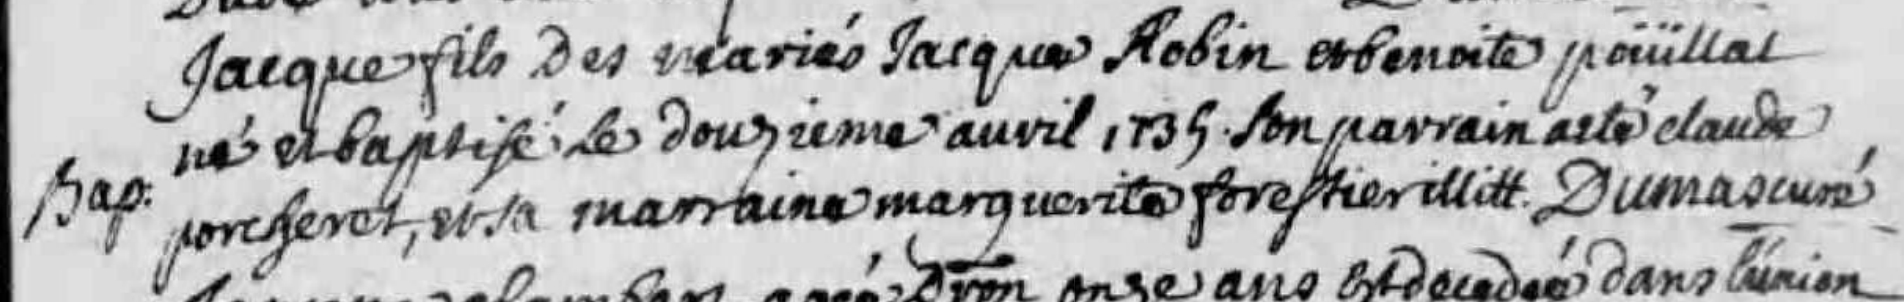 Jacque fils des mariés Jacque Robin et benoite poüillat
né et baptisé le douzieme auvril 1735. son parrain a eté claude
Bap: porcheret, et sa marraine marguerite forestier illitt. Dumas curé
agé d'environ onze ans est decedé dans l'union